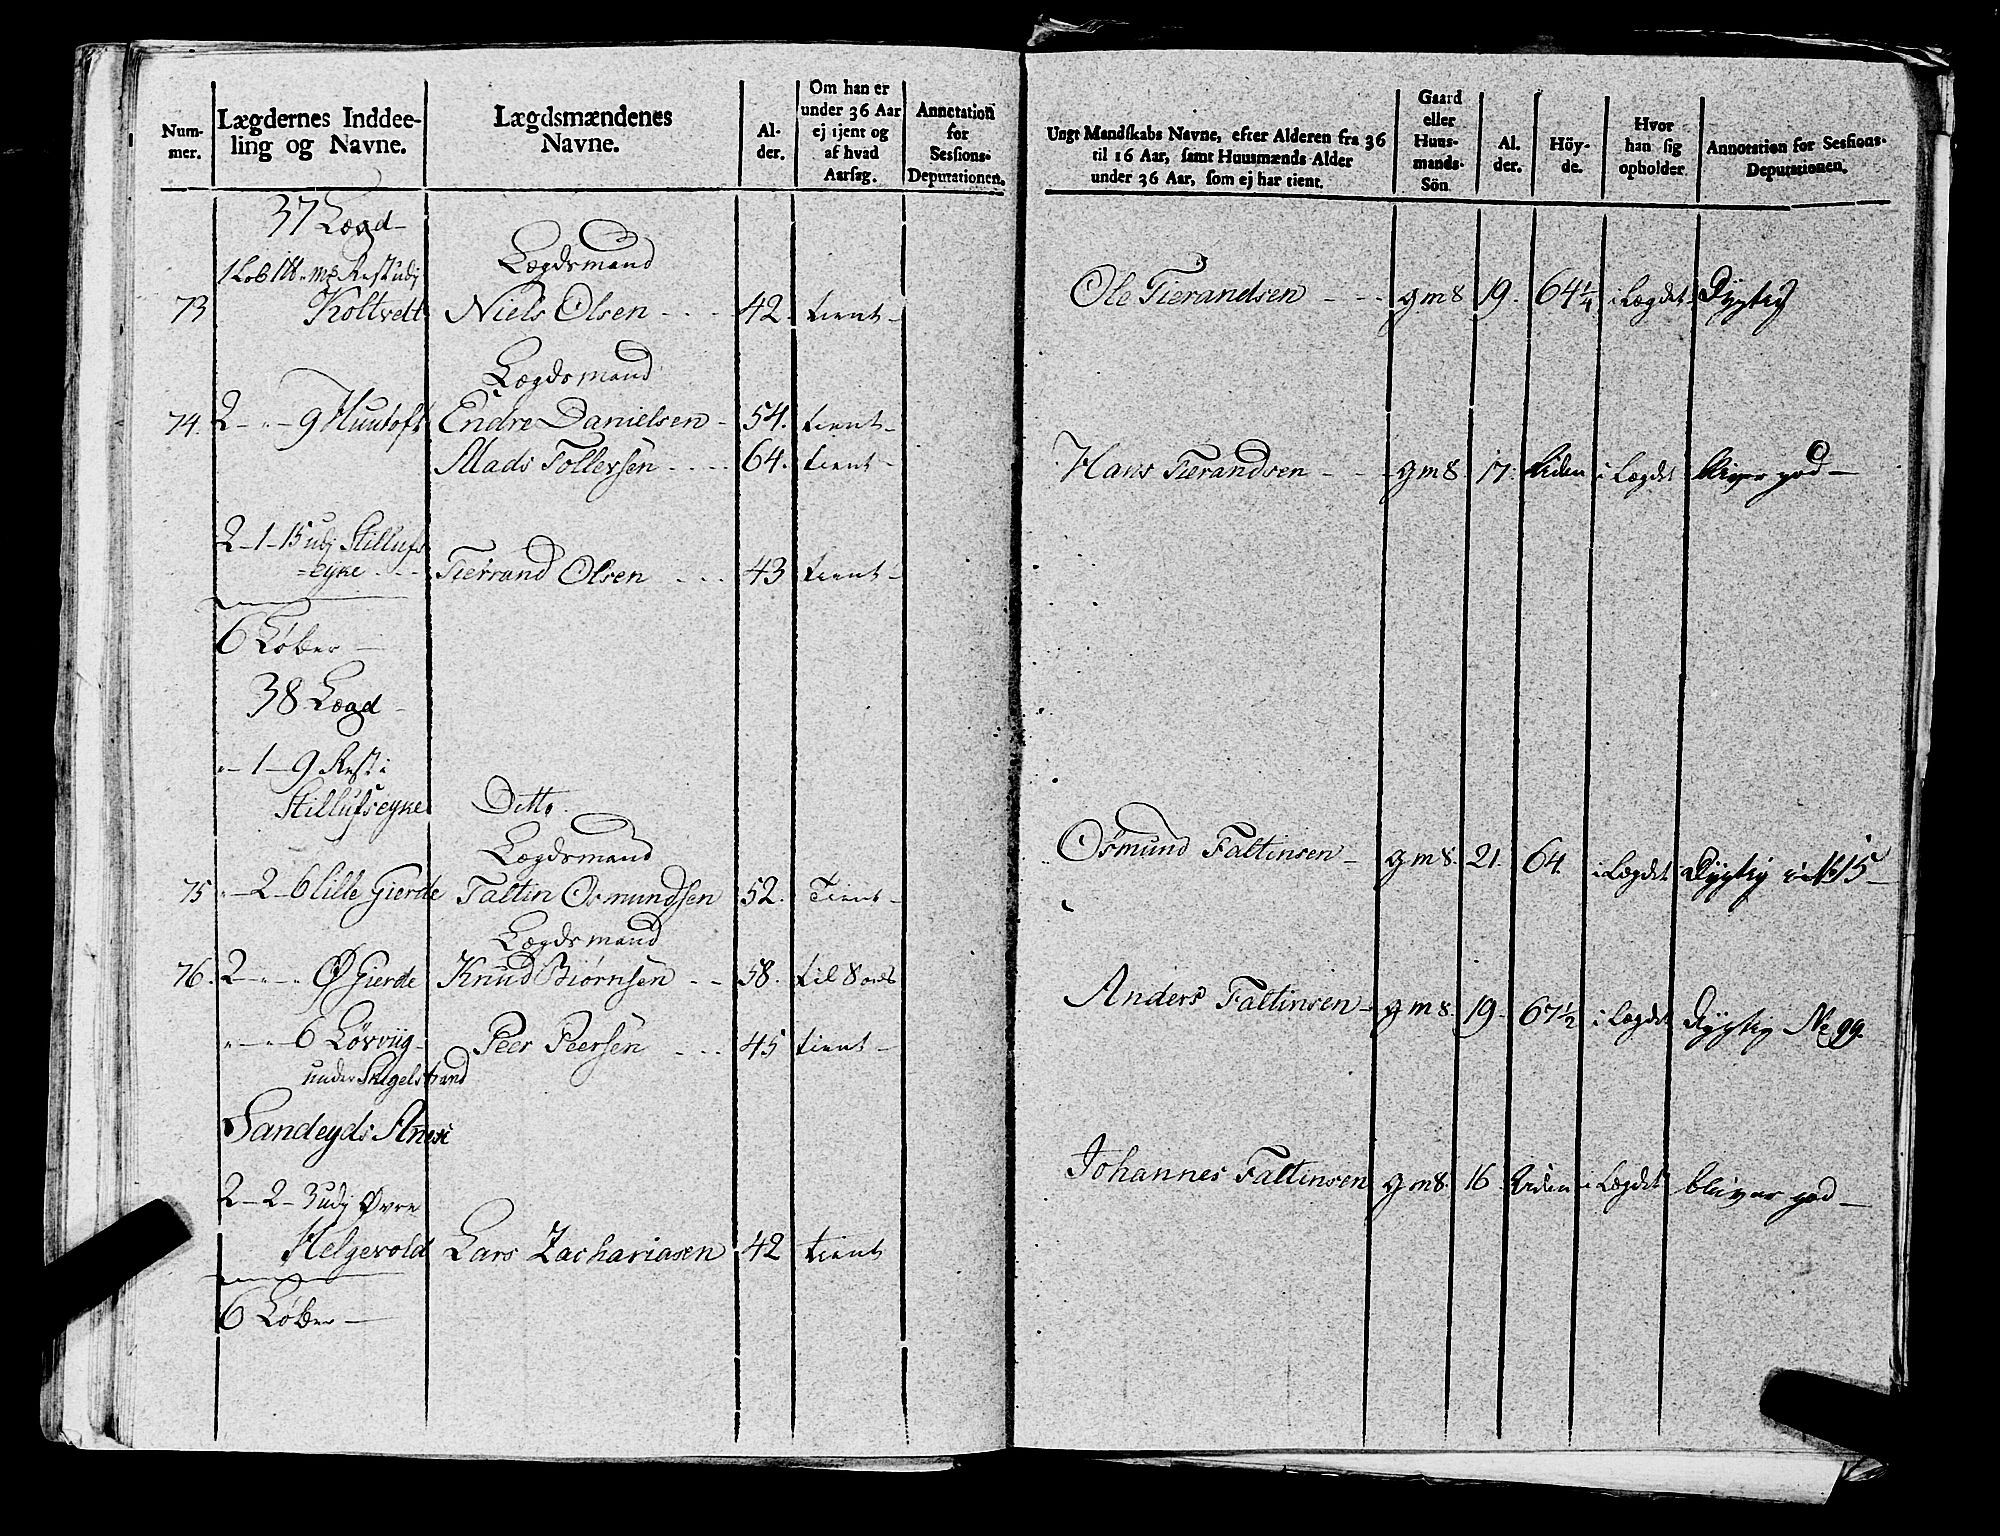 Num-
mer.
Lægdernes Inddee-
ling og Navne.
Lægdsmændenes
Navne.
Al-
der.
Om han er
under 36 Aar
ej tjent og
af hvad
Aarsag.
Annotation
for
Sessions-
Deputationen.
37 Lægd
Lægdsmand
73 Koltvett Niels Olsen 42. tient
Lægdsmand
74. 2 - " - 9 Huutoft Endre Danielsen 54. tient
Mads Tollevsen 64. tient
2 - 1 - 15 udj Stillufs
=eyke Tierrand Olsen 43 tient
6 Løber
38 Lægd
" - 1 - 9 Rest i
Stillufseyke Ditto
Lægdsmand
75 " - 2 - 6 Lille Gierde Faltin Osmundsen 52. Tient
Lægdsmand
76. 2 - " - " Ø Gierde Knud Biørnsen 58. til Sods
" - " - 6 Løvviig Peer Peersen 45 tient
under Skigelstrand
Sandeyds
2 - 2 - 3 udj Øvre
Helgevold Lars Zachariasen 42 tient
6 Løber
Ungt Mandskabs Navne, efter Alderen fra 36
til 16 Aar, samt Huusmænds Alder
under 36 Aar, som ej har tient.
Gaard
eller
Huus-
mands-
Sön.
Al.
der.
Höy-
de.
Hvor
han sig
opholder
Annotation for Sessions-
Deputationen.
Ole Tierandsen gms 19. 64 1/4 i Lægdet Dygtig
Hans Tierandsen gms 17. Liden i Lægdet bliver god
Osmund Faltinsen gms. 21. 64. i Lægdet Dygtig
Anders Faltinsen gms. 19. 67 1/2 i Lægdet Dygtig No 99.
Johannes Faltinsen gms. 16 Liden i Lægdet bliver god